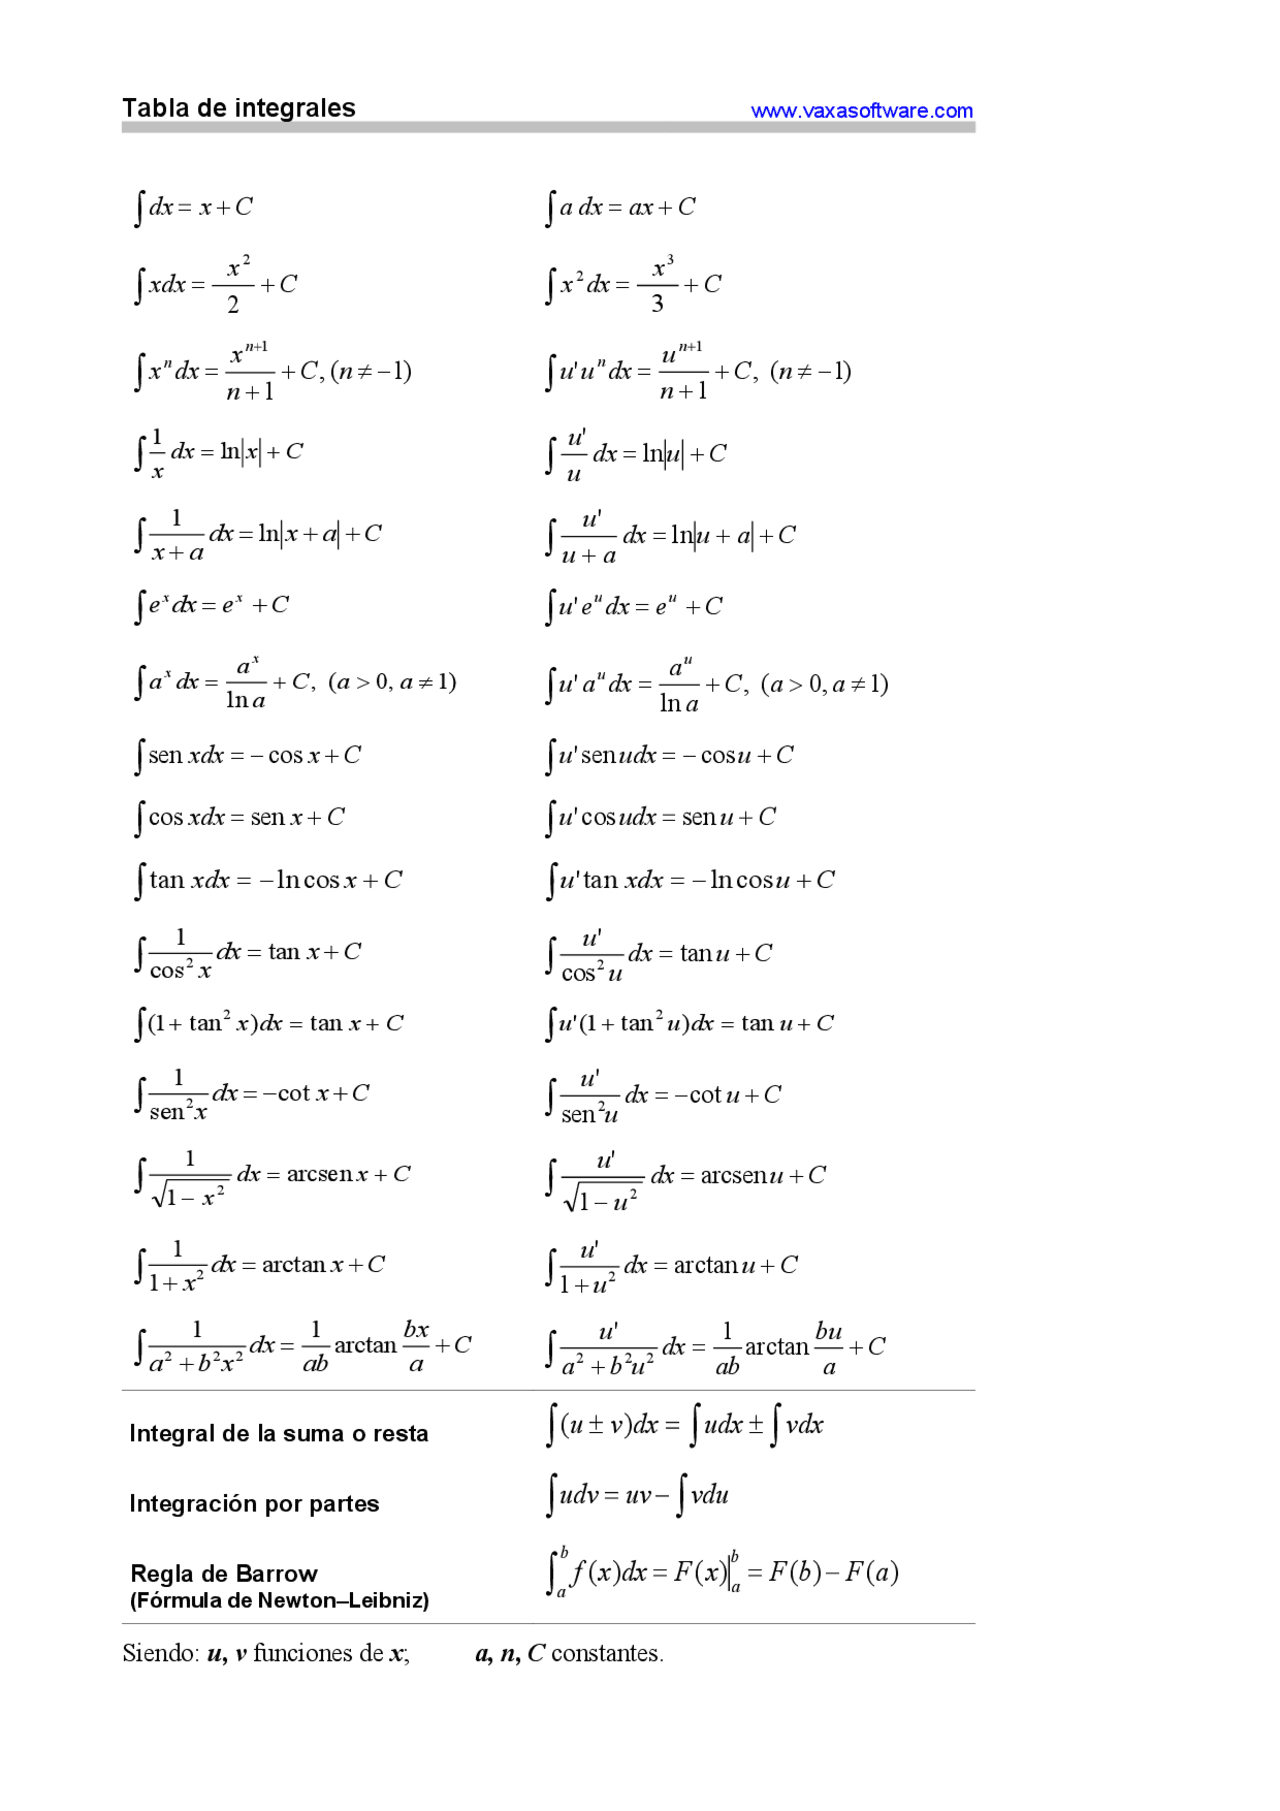 Tabla de integrales www.vaxasoftware.com
∫ dx = x + C ∫ a dx = ax + C
∫ xdx = x²/2 + C ∫ x² dx = x³/3 + C
∫ xⁿ dx = xⁿ⁺¹/(n+1) + C, (n ≠ −1) ∫ u' uⁿ dx = uⁿ⁺¹/(n+1) + C, (n ≠ −1)
∫ 1/x dx = ln|x| + C ∫ u'/u dx = ln|u| + C
∫ 1/(x+a) dx = ln|x+a| + C ∫ u'/(u+a) dx = ln|u+a| + C
∫ eˣ dx = eˣ + C ∫ u' eᵘ dx = eᵘ + C
∫ aˣ dx = aˣ/ln a + C, (a > 0, a ≠ 1) ∫ u' aᵘ dx = aᵘ/ln a + C, (a > 0, a ≠ 1)
∫ sen xdx = − cos x + C ∫ u' sen udx = − cos u + C
∫ cos xdx = sen x + C ∫ u' cos udx = sen u + C
∫ tan xdx = − ln cos x + C ∫ u' tan xdx = − ln cos u + C
∫ 1/cos² x dx = tan x + C ∫ u'/cos² u dx = tan u + C
∫ (1 + tan² x)dx = tan x + C ∫ u'(1 + tan² u)dx = tan u + C
∫ 1/sen² x dx = −cot x + C ∫ u'/sen² u dx = −cot u + C
∫ 1/√(1 − x²) dx = arcsen x + C ∫ u'/√(1 − u²) dx = arcsen u + C
∫ 1/(1 + x²) dx = arctan x + C ∫ u'/(1 + u²) dx = arctan u + C
∫ 1/(a² + b²x²) dx = 1/ab arctan bx/a + C ∫ u'/(a² + b²u²) dx = 1/ab arctan bu/a + C
Integral de la suma o resta ∫ (u ± v)dx = ∫ udx ± ∫ vdx
Integración por partes ∫ udv = uv − ∫ vdu
Regla de Barrow ∫ₐᵇ f(x)dx = F(x)|ₐᵇ = F(b) − F(a)
(Fórmula de Newton–Leibniz)
Siendo: u, v funciones de x; a, n, C constantes.